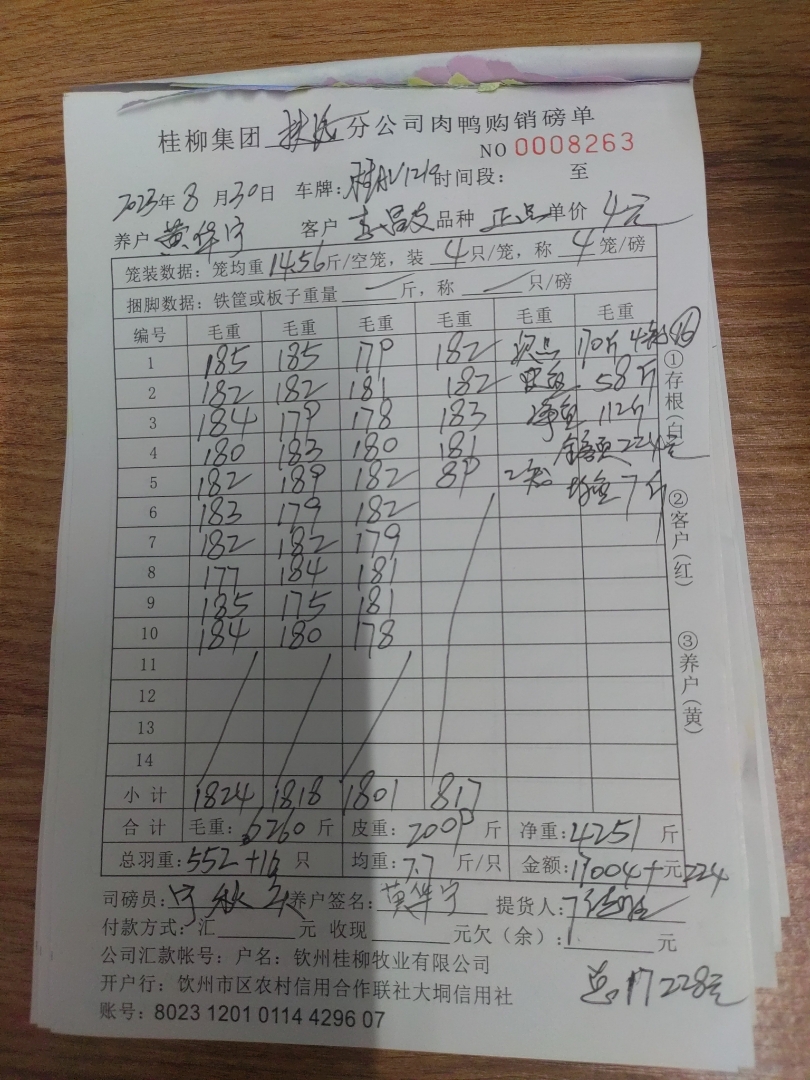 桂柳集团 扶绥 分公司肉鸭购销磅单
NO 0008263
2023年8月30日 车牌: 桂AV1219 时间段: 至
养户 黄华宇 客户 昌友 品种 正品 单价 4元
笼装数据: 笼均重 14.56 斤/空笼, 装 4 只/笼, 称 4 笼/磅
捆脚数据: 铁筐或板子重量 斤, 称 只/磅
编号 毛重 毛重 毛重 毛重 毛重 毛重
1 185 185 179 182 次品 170斤 4 16
2 182 182 181 182 皮重 58斤
3 184 179 178 183 净重 112斤
4 180 183 180 181 金额 224元
5 182 189 182 89 2 均重 7斤
6 183 179 182
7 182 182 179
8 177 184 181
9 185 175 181
10 184 180 178
11
12
13
14
小计 1824 1818 1801 817
合计 毛重: 6260 斤 皮重: 2009 斤 净重: 4251 斤
总羽重: 552+16 只 均重: 7.7 斤/只 金额: 17004+ 元 224
司磅员: 宁秋 养户签名: 黄华宇 提货人:
付款方式: 汇 元 收现 元欠(余): 元
公司汇款帐号: 户名: 钦州桂柳牧业有限公司
开户行: 钦州市区农村信用合作联社大垌信用社
总17228元
账号: 8023 1201 0114 4296 07
①存根(白)
②客户(红)
③养户(黄)